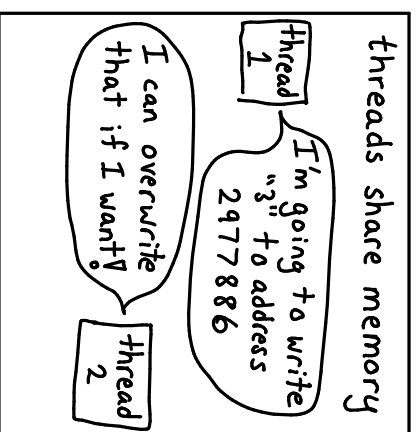 threads share memory
thread
1
I'm going to write
"3" to address
2977886
I can overwrite
that if I want!
thread
2